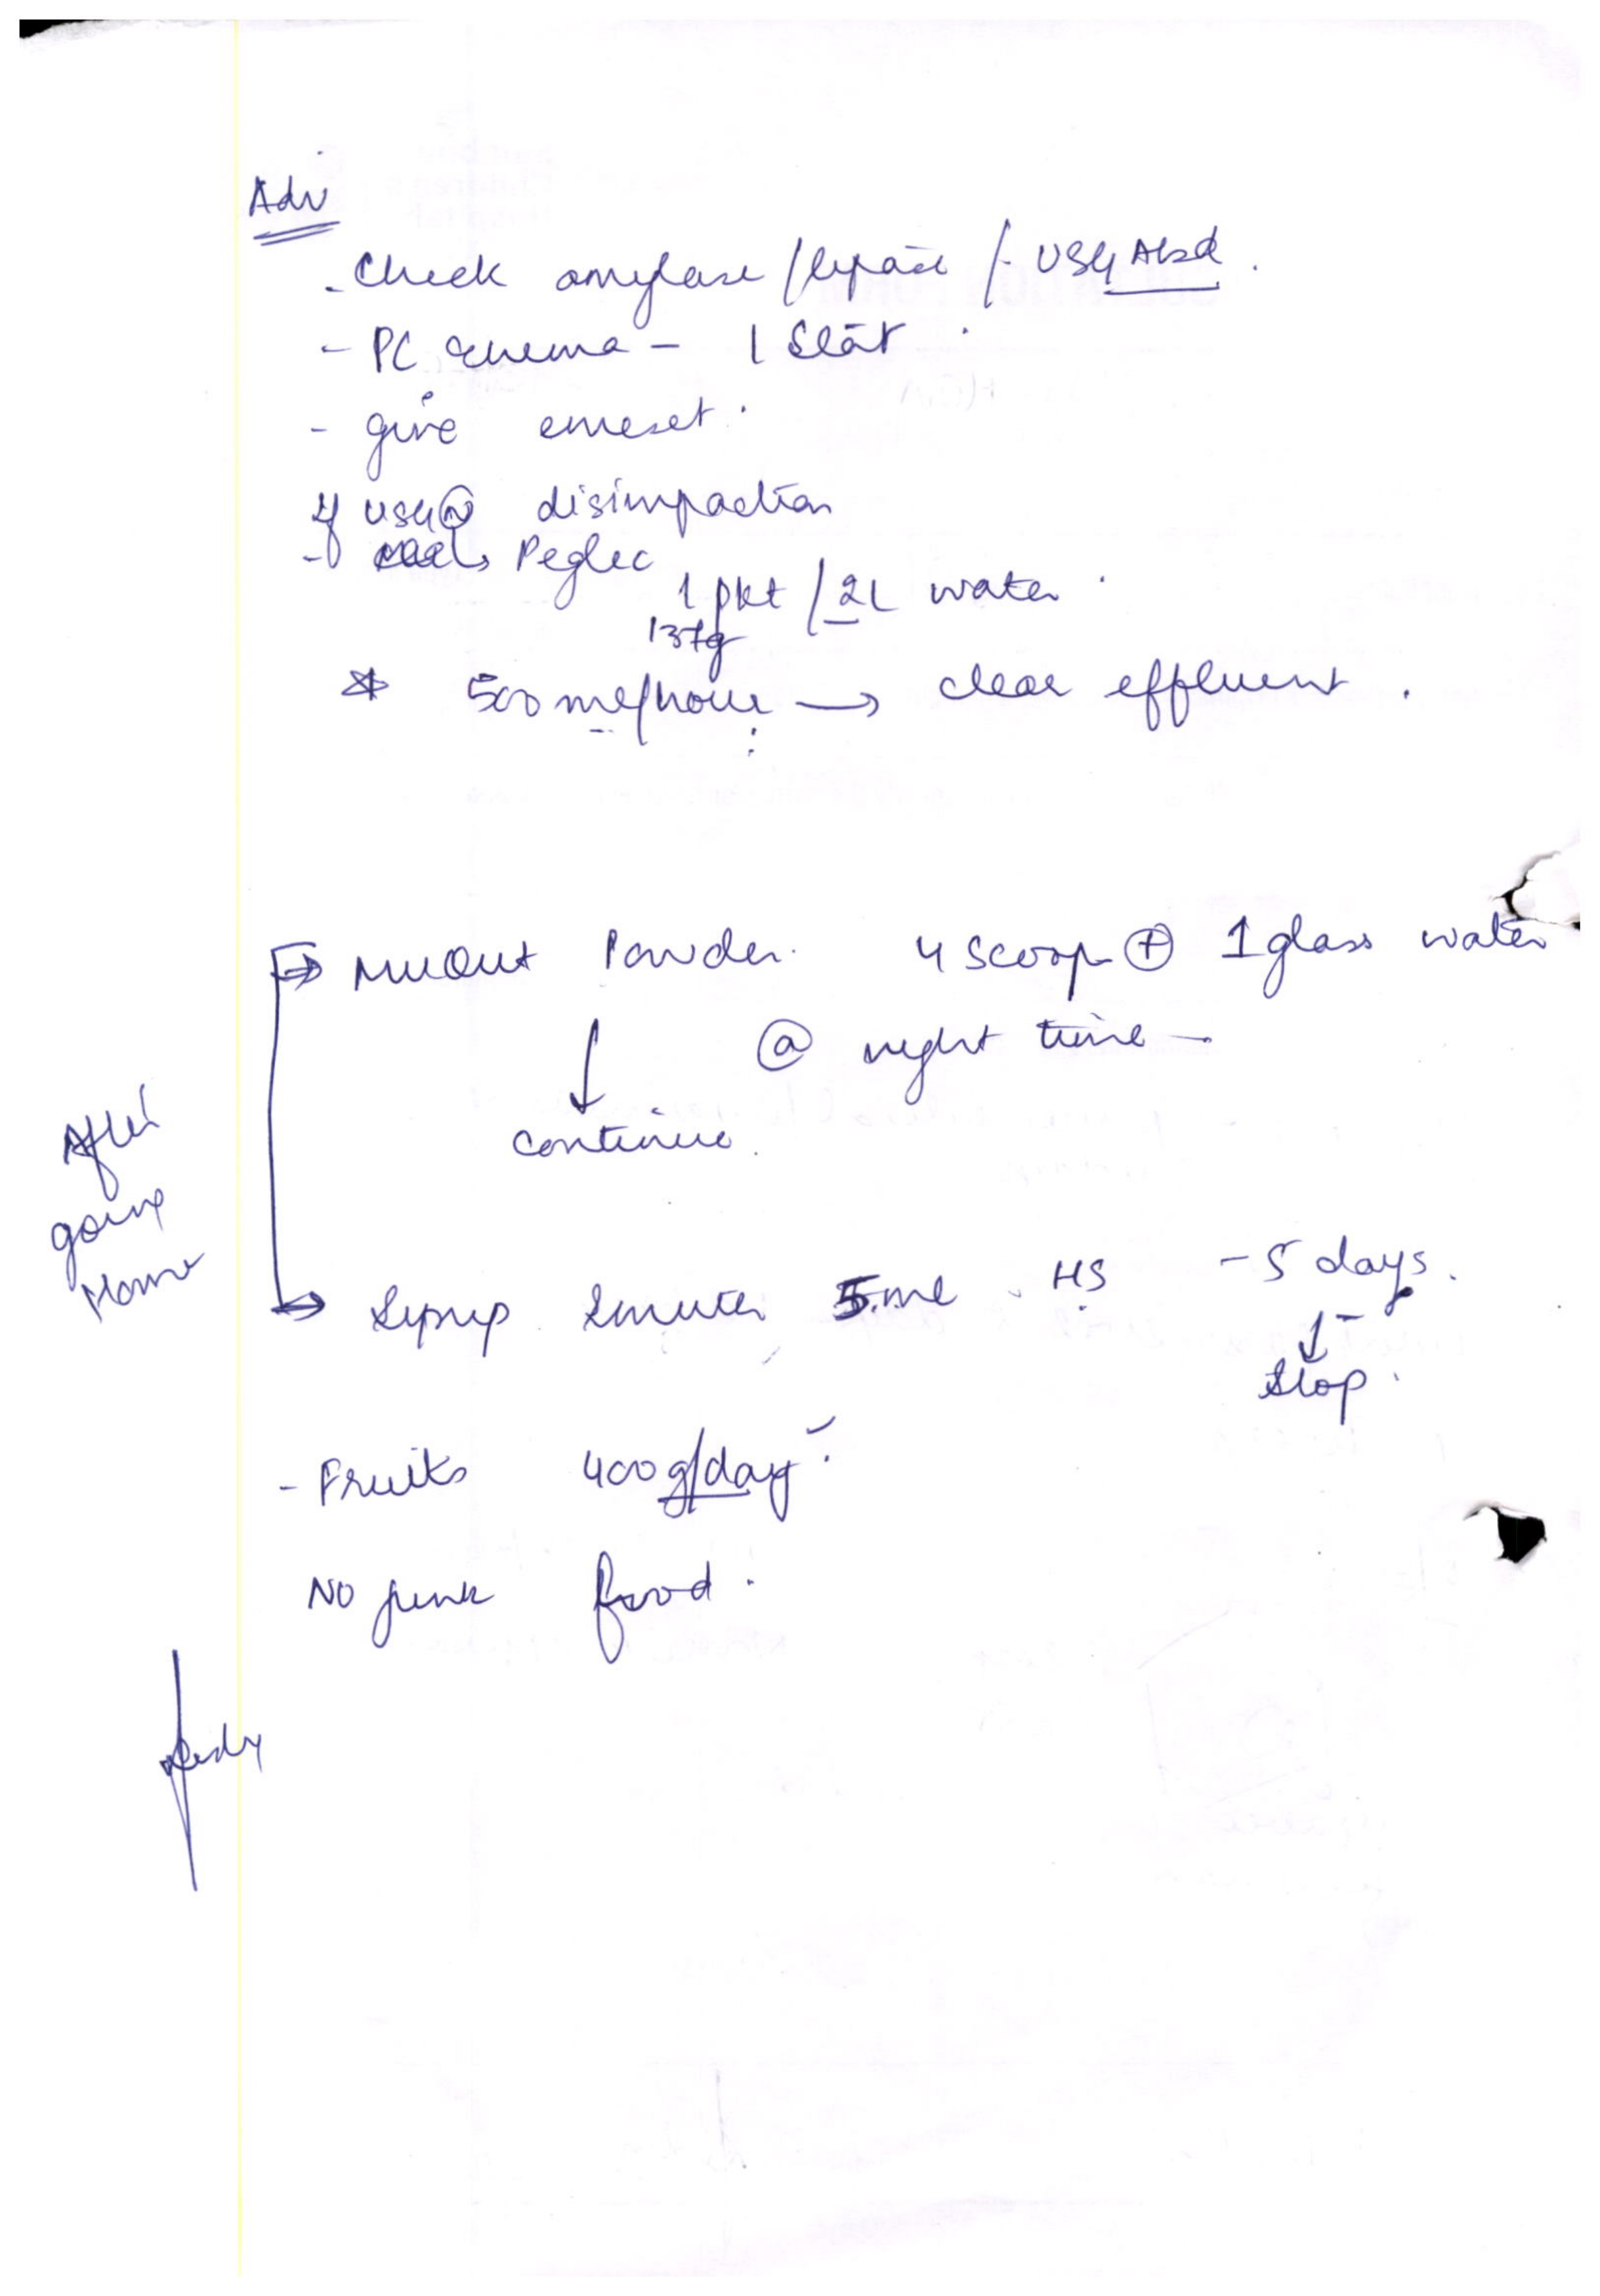 Adv
- Check amylase / lipase / USG Abd.
- PC enema - 1 stat.
- give emeset.
If USG (N) disimpaction
- Peglec
1 pkt / 2L water.
137g
* 500 ml/hour → clear effluent.
→ Muout Powder. 4 scoop ⊕ 1 glass water
@ night time -
↓
continue.
After
going
Home
→ Syrup 5 ml HS - 5 days.
↓
Stop.
- Fruits 400 g/day.
NO junk food.